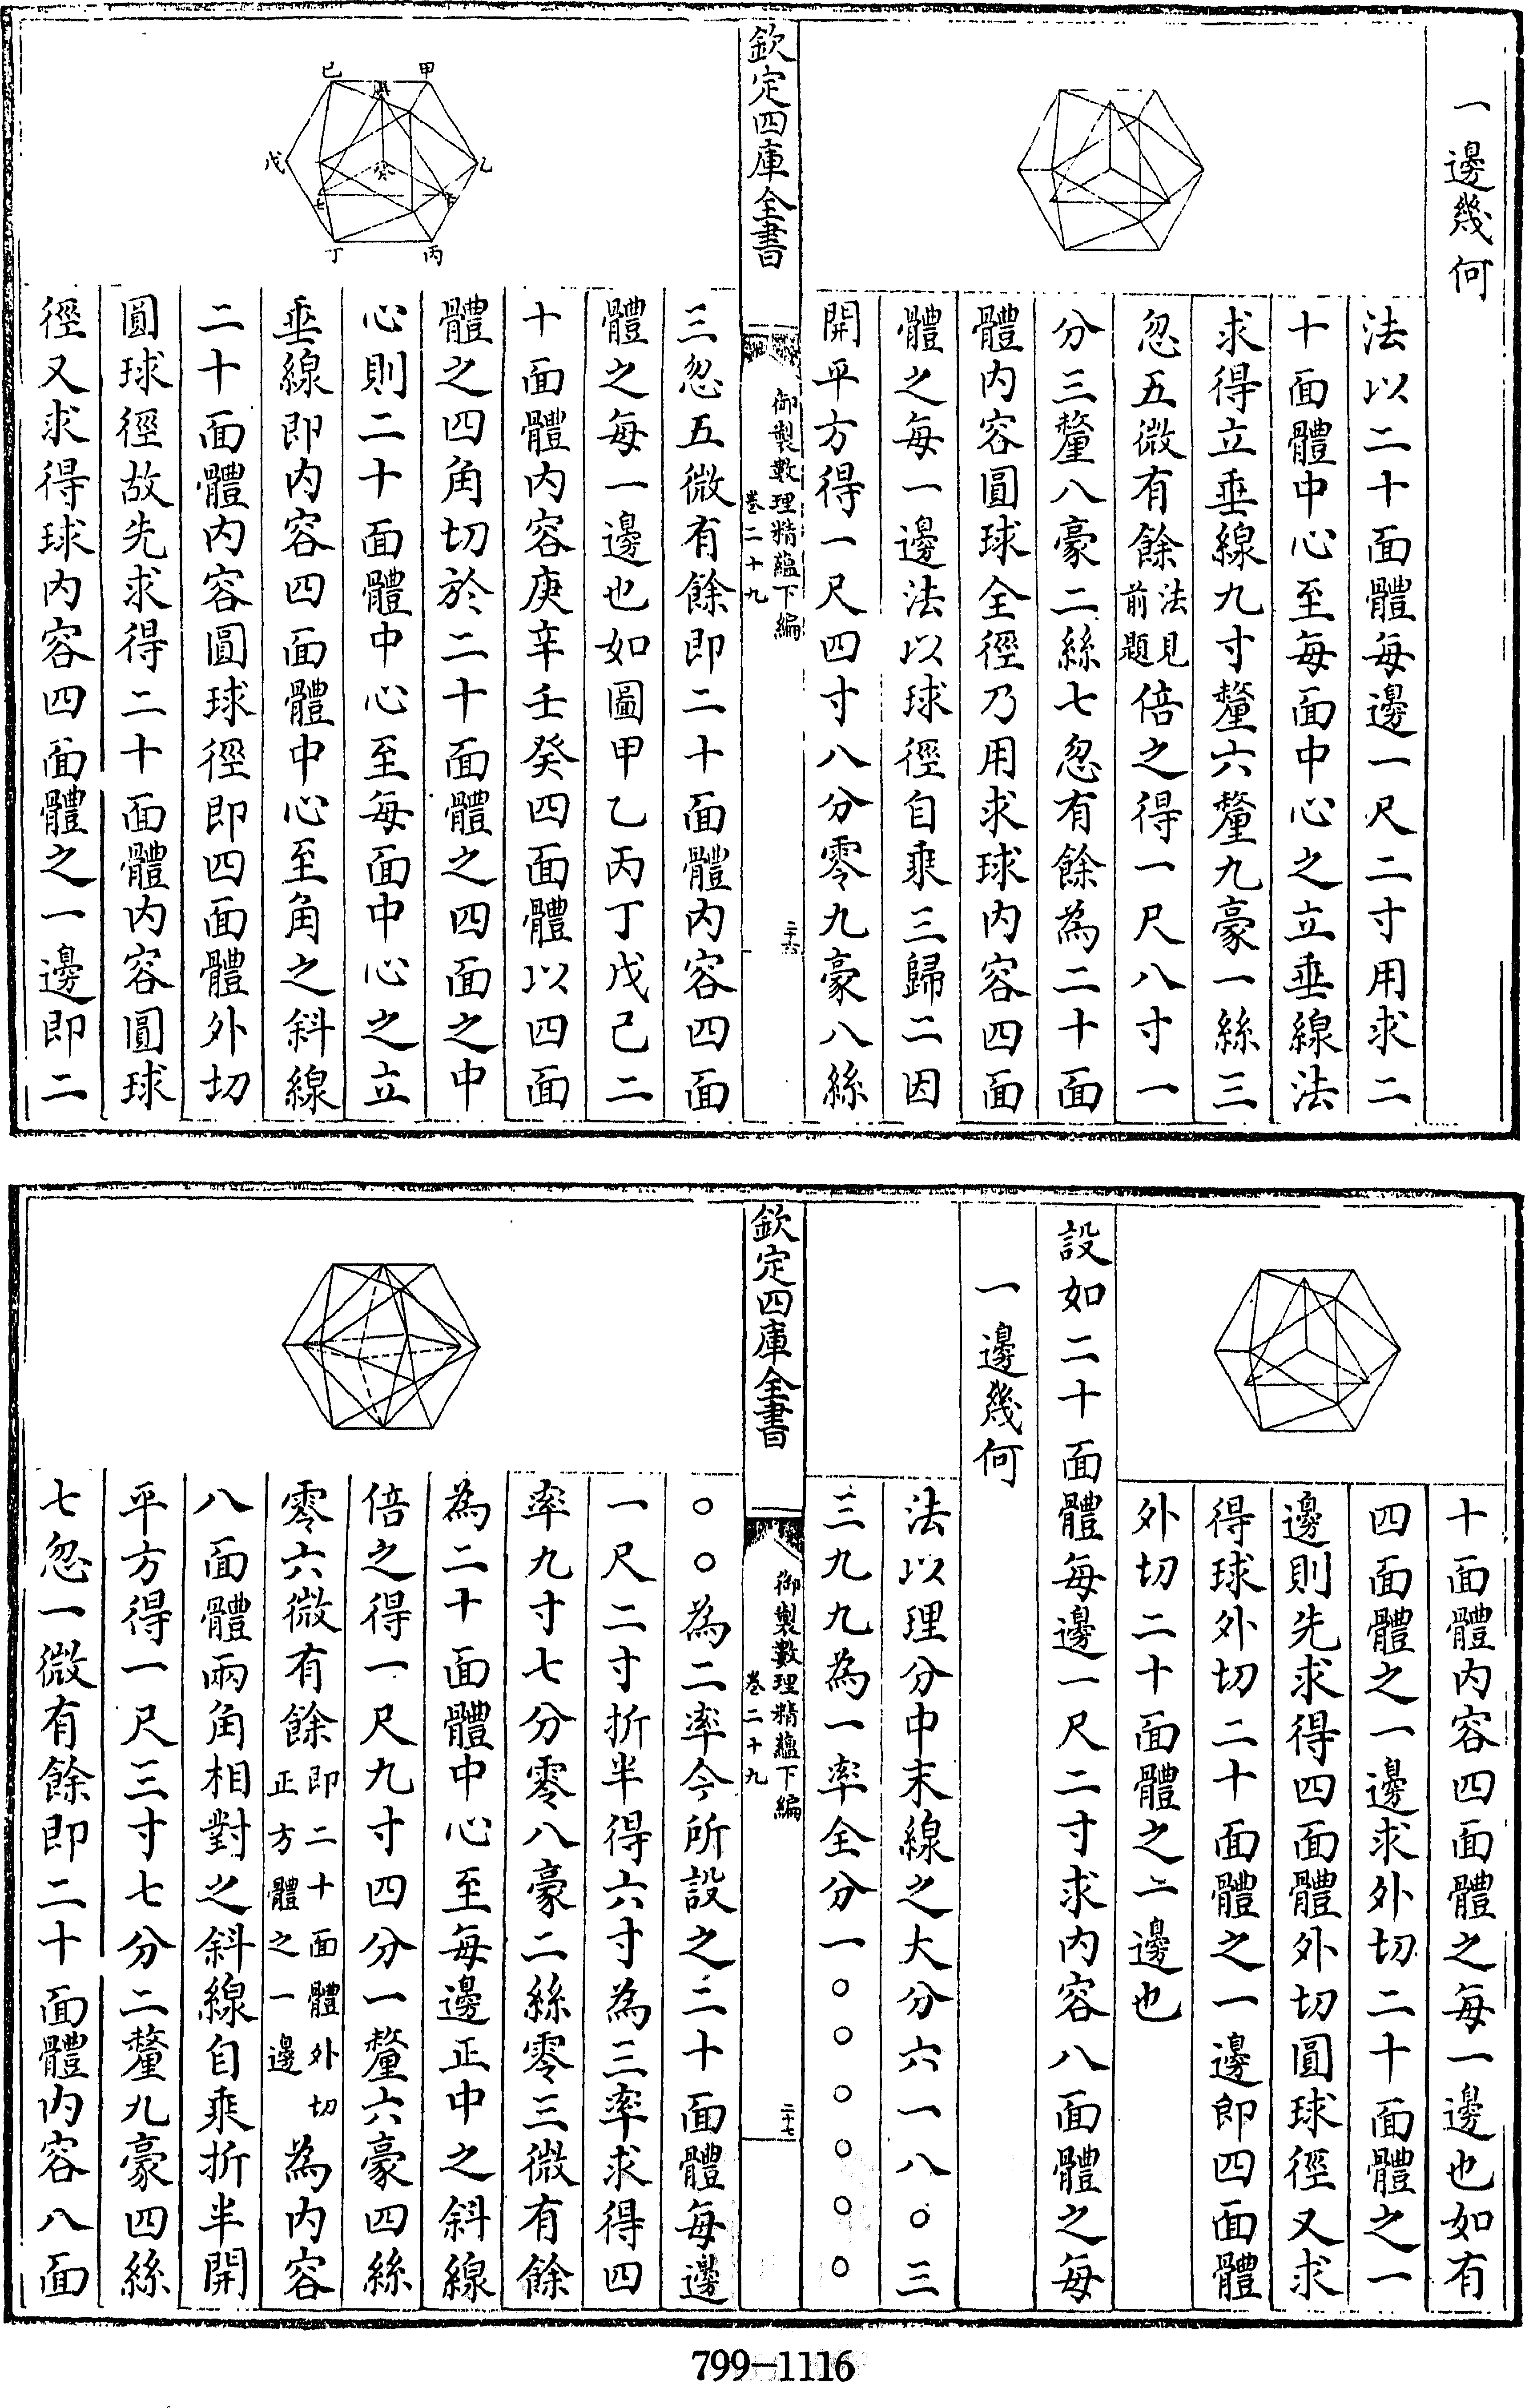 一邊幾何
法以二十面體每邊一尺二寸用求二
十面體中心至每面中心之立垂線法
求得立垂線九寸釐六釐九豪一絲三
忽五微有餘法見前題倍之得一尺八寸一
分三釐八豪二絲七忽有餘為二十面
體内容圓球全徑乃用求球内容四面
體之每一邊法以球徑自乘三歸二因
開平方得一尺四寸八分零九豪八絲
欽定四庫全書
御製數理精蘊下編
卷二十九
二十六
三忽五微有餘即二十面體内容四面
體之每一邊也如圖甲乙丙丁戊己二
十面體内容庚辛壬癸四面體以四面
體之四角切於二十面體之四面之中
心則二十面體中心至每面中心之立
垂線即内容四面體中心至角之斜線
二十面體内容圓球徑即四面體外切
圓球徑故先求得二十面體内容圓球
徑又求得球内容四面體之一邊即二
己 甲
庚
戊 癸 乙
壬 辛
丁 丙
十面體内容四面體之每一邊也如有
四面體之一邊求外切二十面體之一
邊則先求得四面體外切圓球徑又求
得球外切二十面體之一邊即四面體
外切二十面體之一邊也
設如二十面體每邊一尺二寸求内容八面體之每
一邊幾何
法以理分中末線之大分六一八〇三
三九九為一率全分一〇〇〇〇〇〇
欽定四庫全書
御製數理精蘊下編
卷二十九
二十七
〇〇為二率今所設之二十面體每邊
一尺二寸折半得六寸為三率求得四
率九寸七分零八豪二絲零三微有餘
為二十面體中心至每邊正中之斜線
倍之得一尺九寸四分一釐六豪四絲
零六微有餘即二十面體外切正方體之一邊為内容
八面體兩角相對之斜線自乘折半開
平方得一尺三寸七分二釐九豪四絲
七忽一微有餘即二十面體内容八面
799-1116